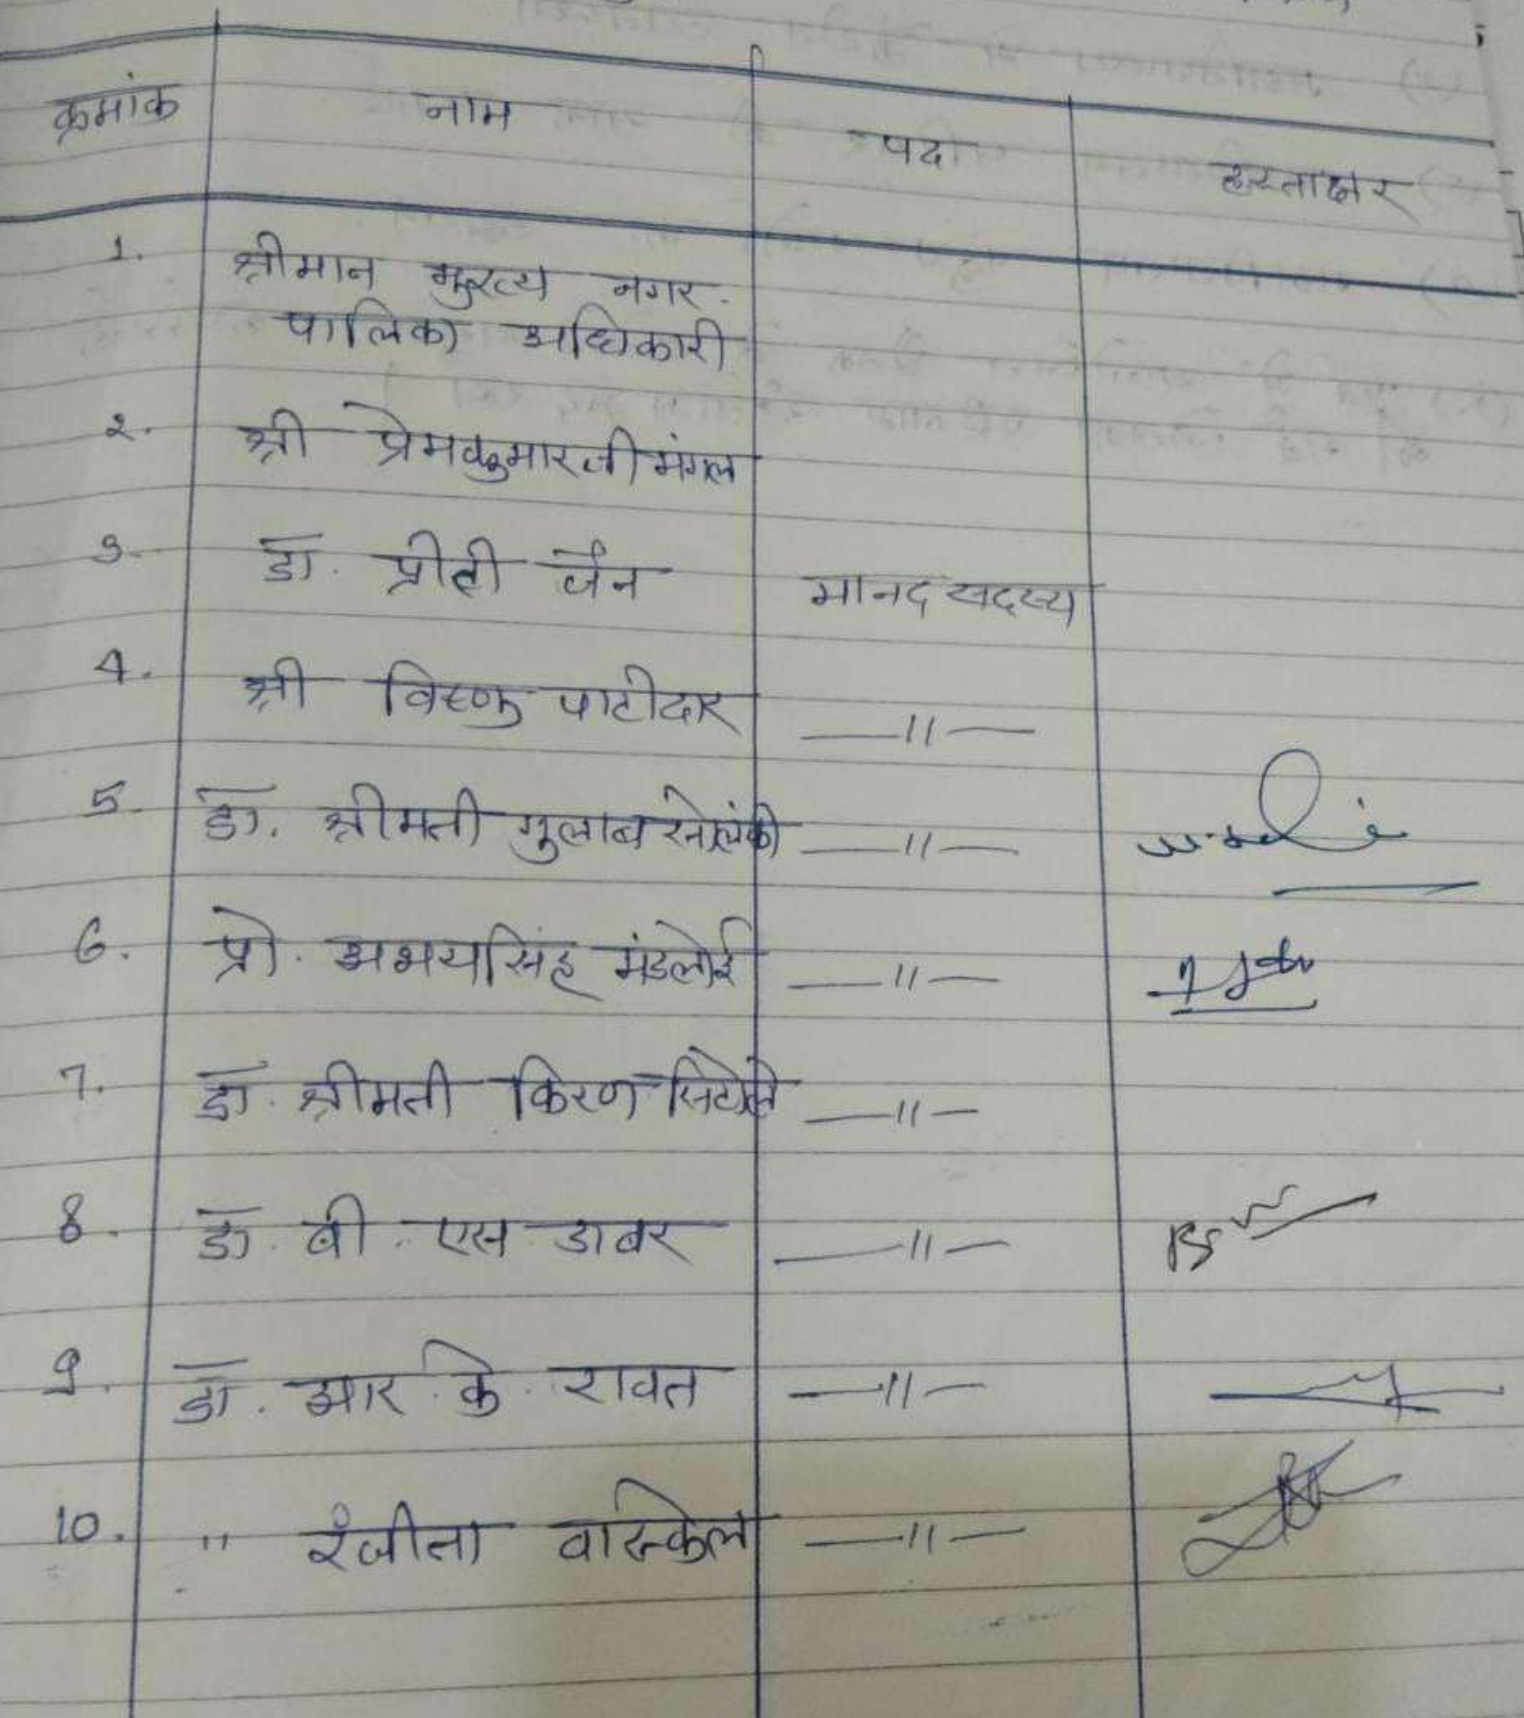 क्रमांक नाम पद हस्ताक्षर
1. श्रीमान मुख्य नगर
पालिका अधिकारी
2. श्री प्रेमकुमारजी मंगल
3. डॉ. प्रीती जैन मानद सदस्य
4. श्री विष्णु पाटीदार —11—
5. डॉ. श्रीमती गुलाब सोलंकी —11—
6. प्रो. अभयसिंह मंडलोई —11—
7. डॉ. श्रीमती किरण सिटोले —11—
8. डॉ. बी. एस डाबर —11—
9. डॉ. आर. के. रावत —11—
10. " रंजीता वास्केल —11—